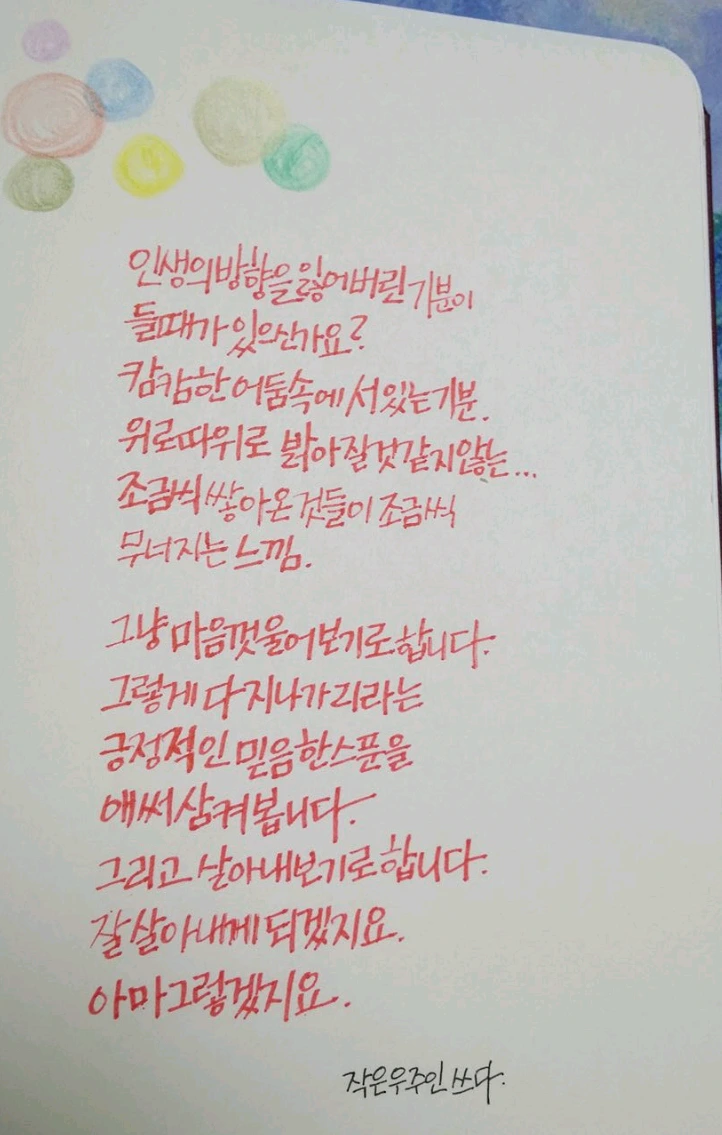 인생의 방향을 잃어버린 기분이
들때가 있으신가요?
캄캄한 어둠속에 서있는기분.
위로따위로 밝아질것같지않는...
조금씩 쌓아온것들이 조금씩
무너지는 느낌.
그냥 마음껏 울어보기로 합니다.
그렇게 다 지나가리라는
긍정적인 믿음 한스푼을
애써 삼켜봅니다.
그리고 살아내보기로 합니다.
잘 살아내게 되겠지요.
아마 그렇겠지요.
작은우주인 쓰다.